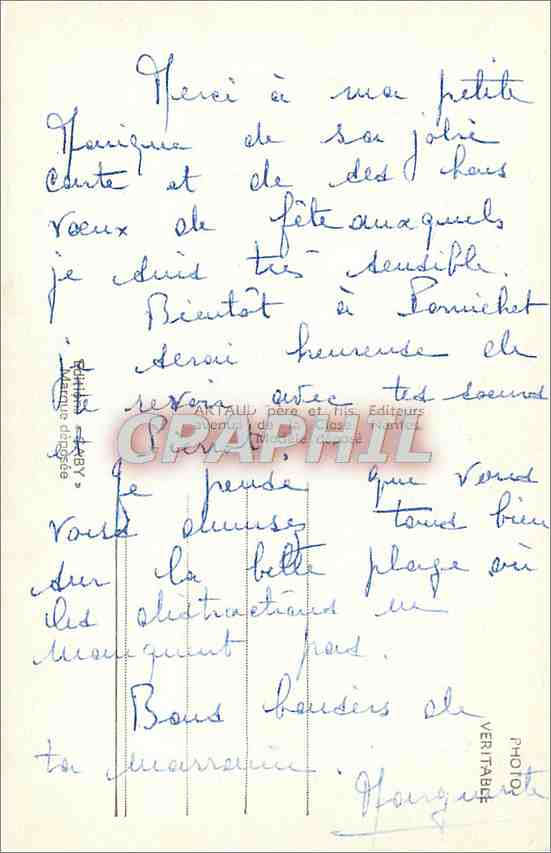 Merci à ma petite
Monique de sa jolie
carte et de ses bons
voeux de fête auxquels
je suis très sensible.
Bientôt à Pornichet
je serai heureuse de
te revoir avec tes soeurs
et Pierrot.
Je pense que vous
vous amusez tous bien
sur la belle plage où
les distractions ne
manquent pas.
Bons baisers de
ta marraine.
Marguerite
ARTAUD père et fils, Editeurs
avenue de la Close Nantes
Modèle déposé
CPAPHIL
Editions "GABY"
Marque déposée
PHOTO
VERITABLE